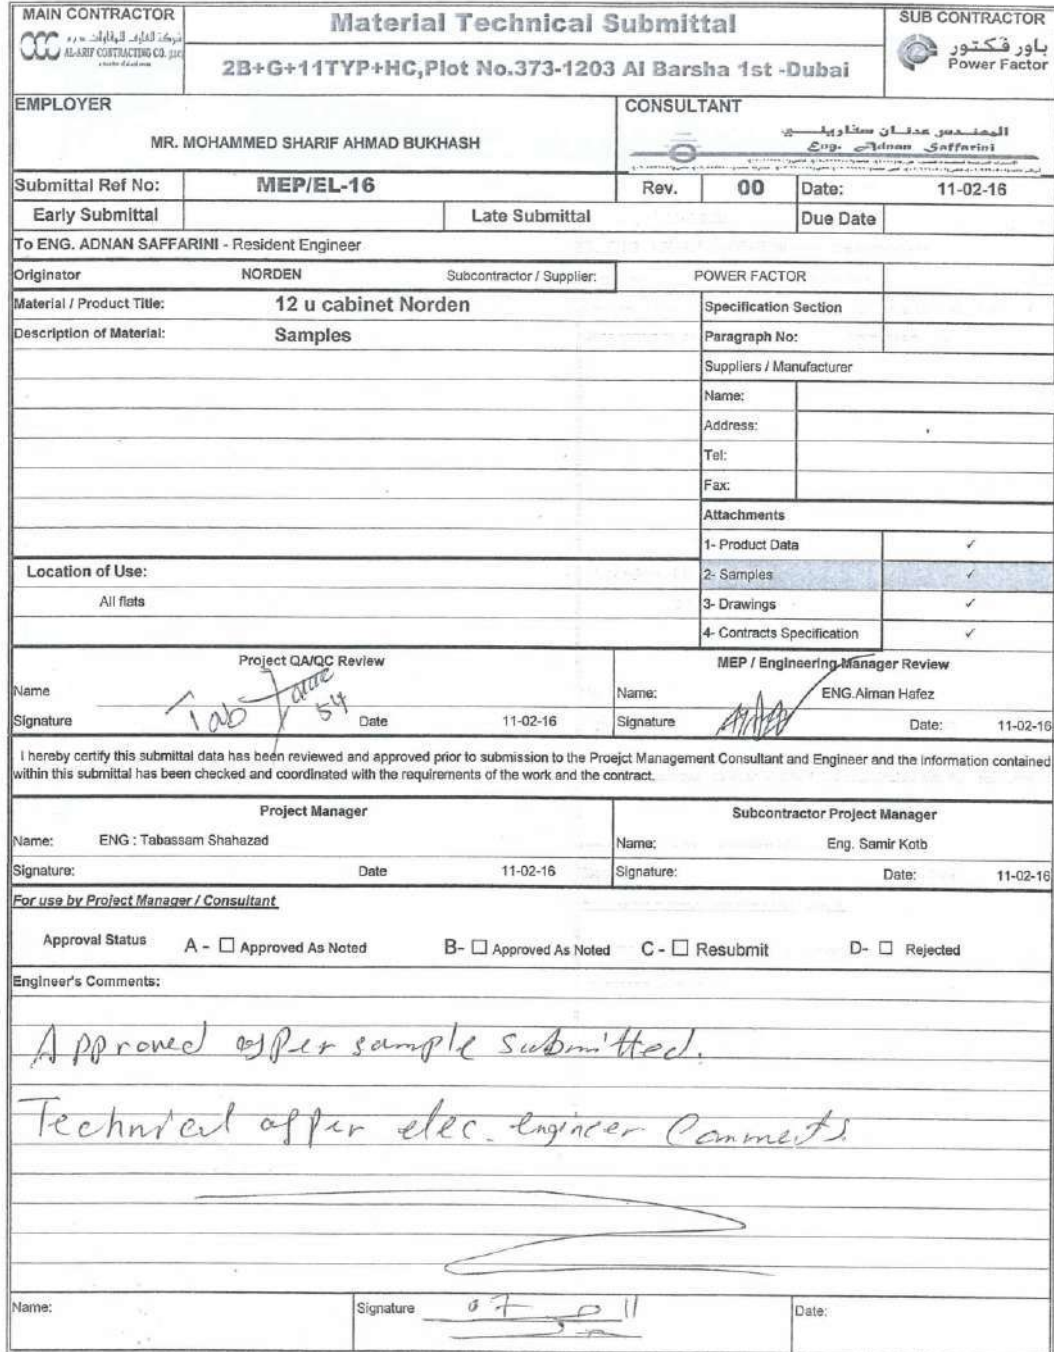 MAIN CONTRACTOR
CCC
AL-ARIF CONTRACTING CO.
Material Technical Submittal
2B+G+11TYP+HC,Plot No.373-1203 Al Barsha 1st -Dubai
SUB CONTRACTOR
باور فكتور
Power Factor
EMPLOYER
MR. MOHAMMED SHARIF AHMAD BUKHASH
CONSULTANT
المهندس عدنان سفاريني
Eng. Adnan Saffarini
Submittal Ref No: MEP/EL-16 Rev. 00 Date: 11-02-16
Early Submittal Late Submittal Due Date
To ENG. ADNAN SAFFARINI - Resident Engineer
Originator NORDEN Subcontractor / Supplier: POWER FACTOR
Material / Product Title: 12 u cabinet Norden Specification Section
Description of Material: Samples Paragraph No:
Suppliers / Manufacturer
Name:
Address:
Tel:
Fax:
Attachments
1- Product Data ✓
Location of Use: 2- Samples ✓
All flats 3- Drawings ✓
4- Contracts Specification ✓
Project QA/QC Review MEP / Engineering Manager Review
Name Name: ENG.Aiman Hafez
Signature Date 11-02-16 Signature Date: 11-02-16
I hereby certify this submittal data has been reviewed and approved prior to submission to the Proejct Management Consultant and Engineer and the information contained
within this submittal has been checked and coordinated with the requirements of the work and the contract.
Project Manager Subcontractor Project Manager
Name: ENG : Tabassam Shahazad Name: Eng. Samir Kotb
Signature: Date 11-02-16 Signature: Date: 11-02-16
For use by Project Manager / Consultant
Approval Status A - ☐ Approved As Noted B- ☐ Approved As Noted C - ☐ Resubmit D- ☐ Rejected
Engineer's Comments:
Approved as per sample submitted.
Technical as per elec. engineer Comments
Name: Signature Date: